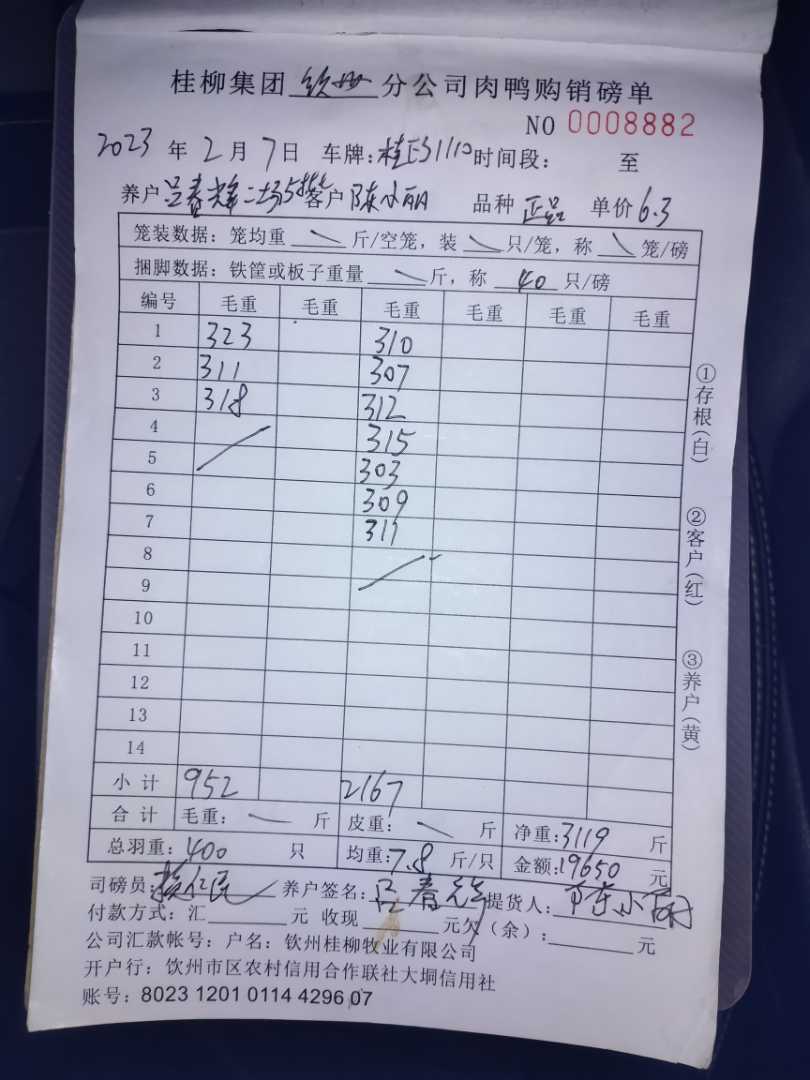 桂柳集团 钦州 分公司肉鸭购销磅单
NO 0008882
2023 年 2 月 7 日 车牌: 时间段: 至
养户 吕春辉二场5批 客户 陈小丽 品种 正品 单价 6.3
笼装数据: 笼均重 \ 斤/空笼, 装 \ 只/笼, 称 \ 笼/磅
捆脚数据: 铁筐或板子重量 \ 斤, 称 40 只/磅
编号 毛重 毛重 毛重 毛重 毛重 毛重
1 323 310
2 311 307
3 318 312
4 315
5 303
6 309
7 311
8
9
10
11
12
13
14
小计 952 2167
合计 毛重: \ 斤 皮重: \ 斤 净重: 3119 斤
总羽重: 400 只 均重: 7.8 斤/只 金额: 19650 元
司磅员: 养户签名: 吕春辉 提货人: 陈小丽
付款方式: 汇 元 收现 元欠(余): 元
公司汇款帐号: 户名: 钦州桂柳牧业有限公司
开户行: 钦州市区农村信用合作联社大垌信用社
账号: 8023 1201 0114 4296 07
①存根(白)
②客户(红)
③养户(黄)